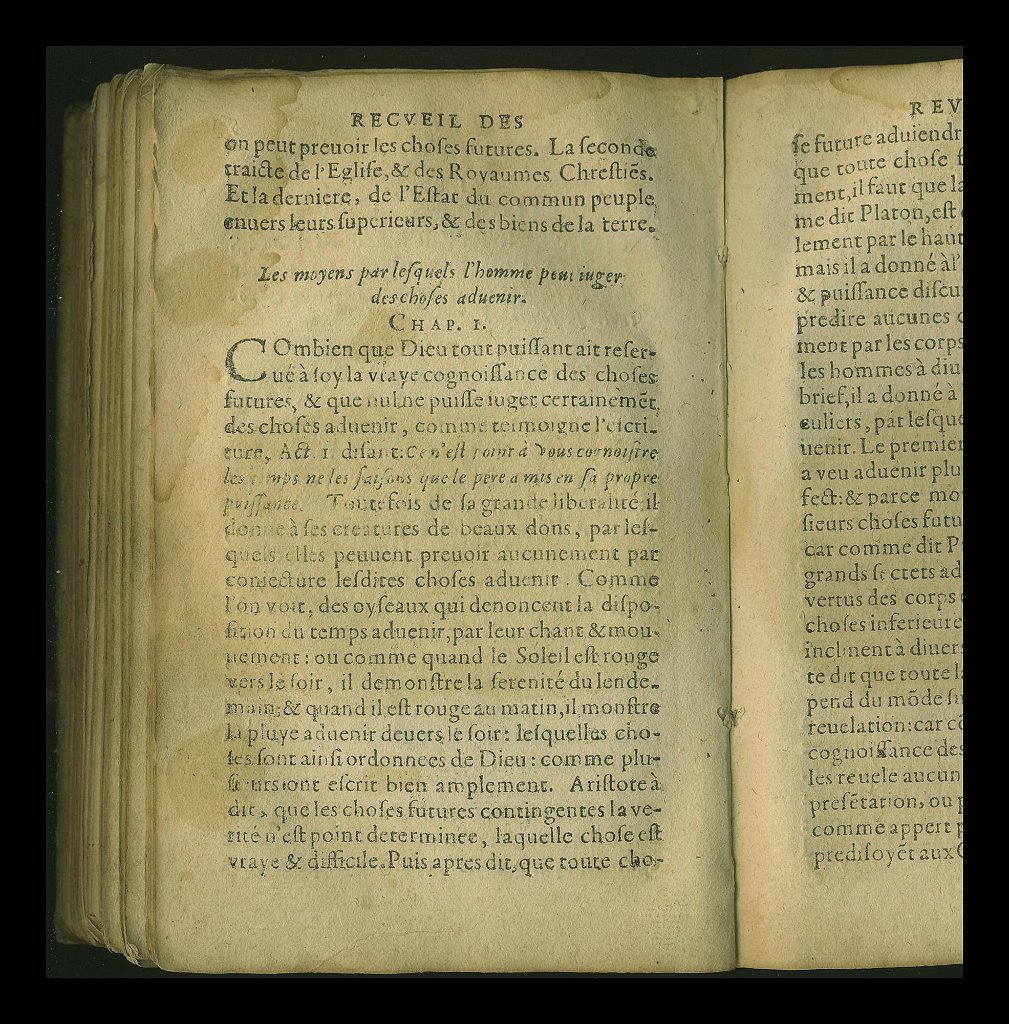 RECVEIL DES
on peut preuoir les choſes futures. La ſeconde
traicte de l'Egliſe, & des Royaumes Chreſtiẽs.
Et la derniere, de l'Eſtat du commun peuple
enuers leurs ſuperieurs, & des biens de la terre.
Les moyens par leſquels l'homme peut iuger
des choſes aduenir.
CHAP. I.
COmbien que Dieu tout puiſſant ait reſer-
ué à ſoy la vraye cognoiſſance des choſes
futures, & que nul ne puiſſe iuger certainemẽt
des choſes aduenir, comme teſmoigne l'eſcri-
ture, Act. 1. diſant: Ce n'eſt point à vous cognoiſtre
les temps ne les ſaiſons que le pere a mis en ſa propre
puiſſance. Toutefois de ſa grande liberalité il
donne à ſes creatures de beaux dons, par leſ-
quels elles peuuent preuoir aucunement par
coniecture leſdites choſes aduenir. Comme
l'on voit, des oyſeaux qui denoncent la diſpo-
ſition du temps aduenir, par leur chant & mou-
uement: ou comme quand le Soleil eſt rouge
vers le ſoir, il demonſtre la ſerenité du lende-
main: & quand il eſt rouge au matin, il monſtre
la pluye aduenir deuers le ſoir: leſquelles cho-
ſes ſont ainſi ordonnees de Dieu: comme plu-
ſieurs ont eſcrit bien amplement. Ariſtote à
dit, que les choſes futures contingentes la ve-
rité n'eſt point determinee, laquelle choſe eſt
vraye & difficile. Puis apres dit, que toute cho-
REV
ſe future aduiendr
que toute choſe f
ment, il faut que la
me dit Platon, eſt
lement par le haut
mais il a donné à l'
& puiſſance diſcu
predire aucunes
ment par les corps
les hommes à diu
brief, il a donné à
culiers, par leſque
uenir. Le premier
a veu aduenir plu
fect: & parce mo
ſieurs choſes futu
car comme dit P
grands ſecrets ad
vertus des corps
choſes inferieure
inclinent à diuer
te dit que toute l
pend du mõde ſu
reuelation: car cõ
cognoiſſance des
les reuele aucun
preſẽtation, ou p
comme appert p
prediſoyẽt aux